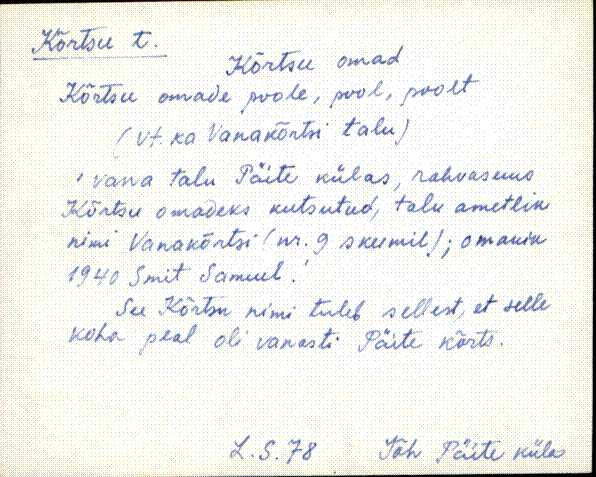 Kõrtsu t.
Kõrtsu omad
Kõrtsu omade poole, pool, poolt
(vt. ka Vanakõrtsi talu)
' vana talu Päite külas, rahvasuus
Kõrtsu omadeks kutsutud, talu ametlik
nimi Vanakõrtsi (nr. 9 skeemil); omanik
1940 Smit Samuel.'
See Kõrtsu nimi tuleb sellest, et selle
koha peal oli vanasti Päite kõrts.
L.S. 78 Jõh Päite külas